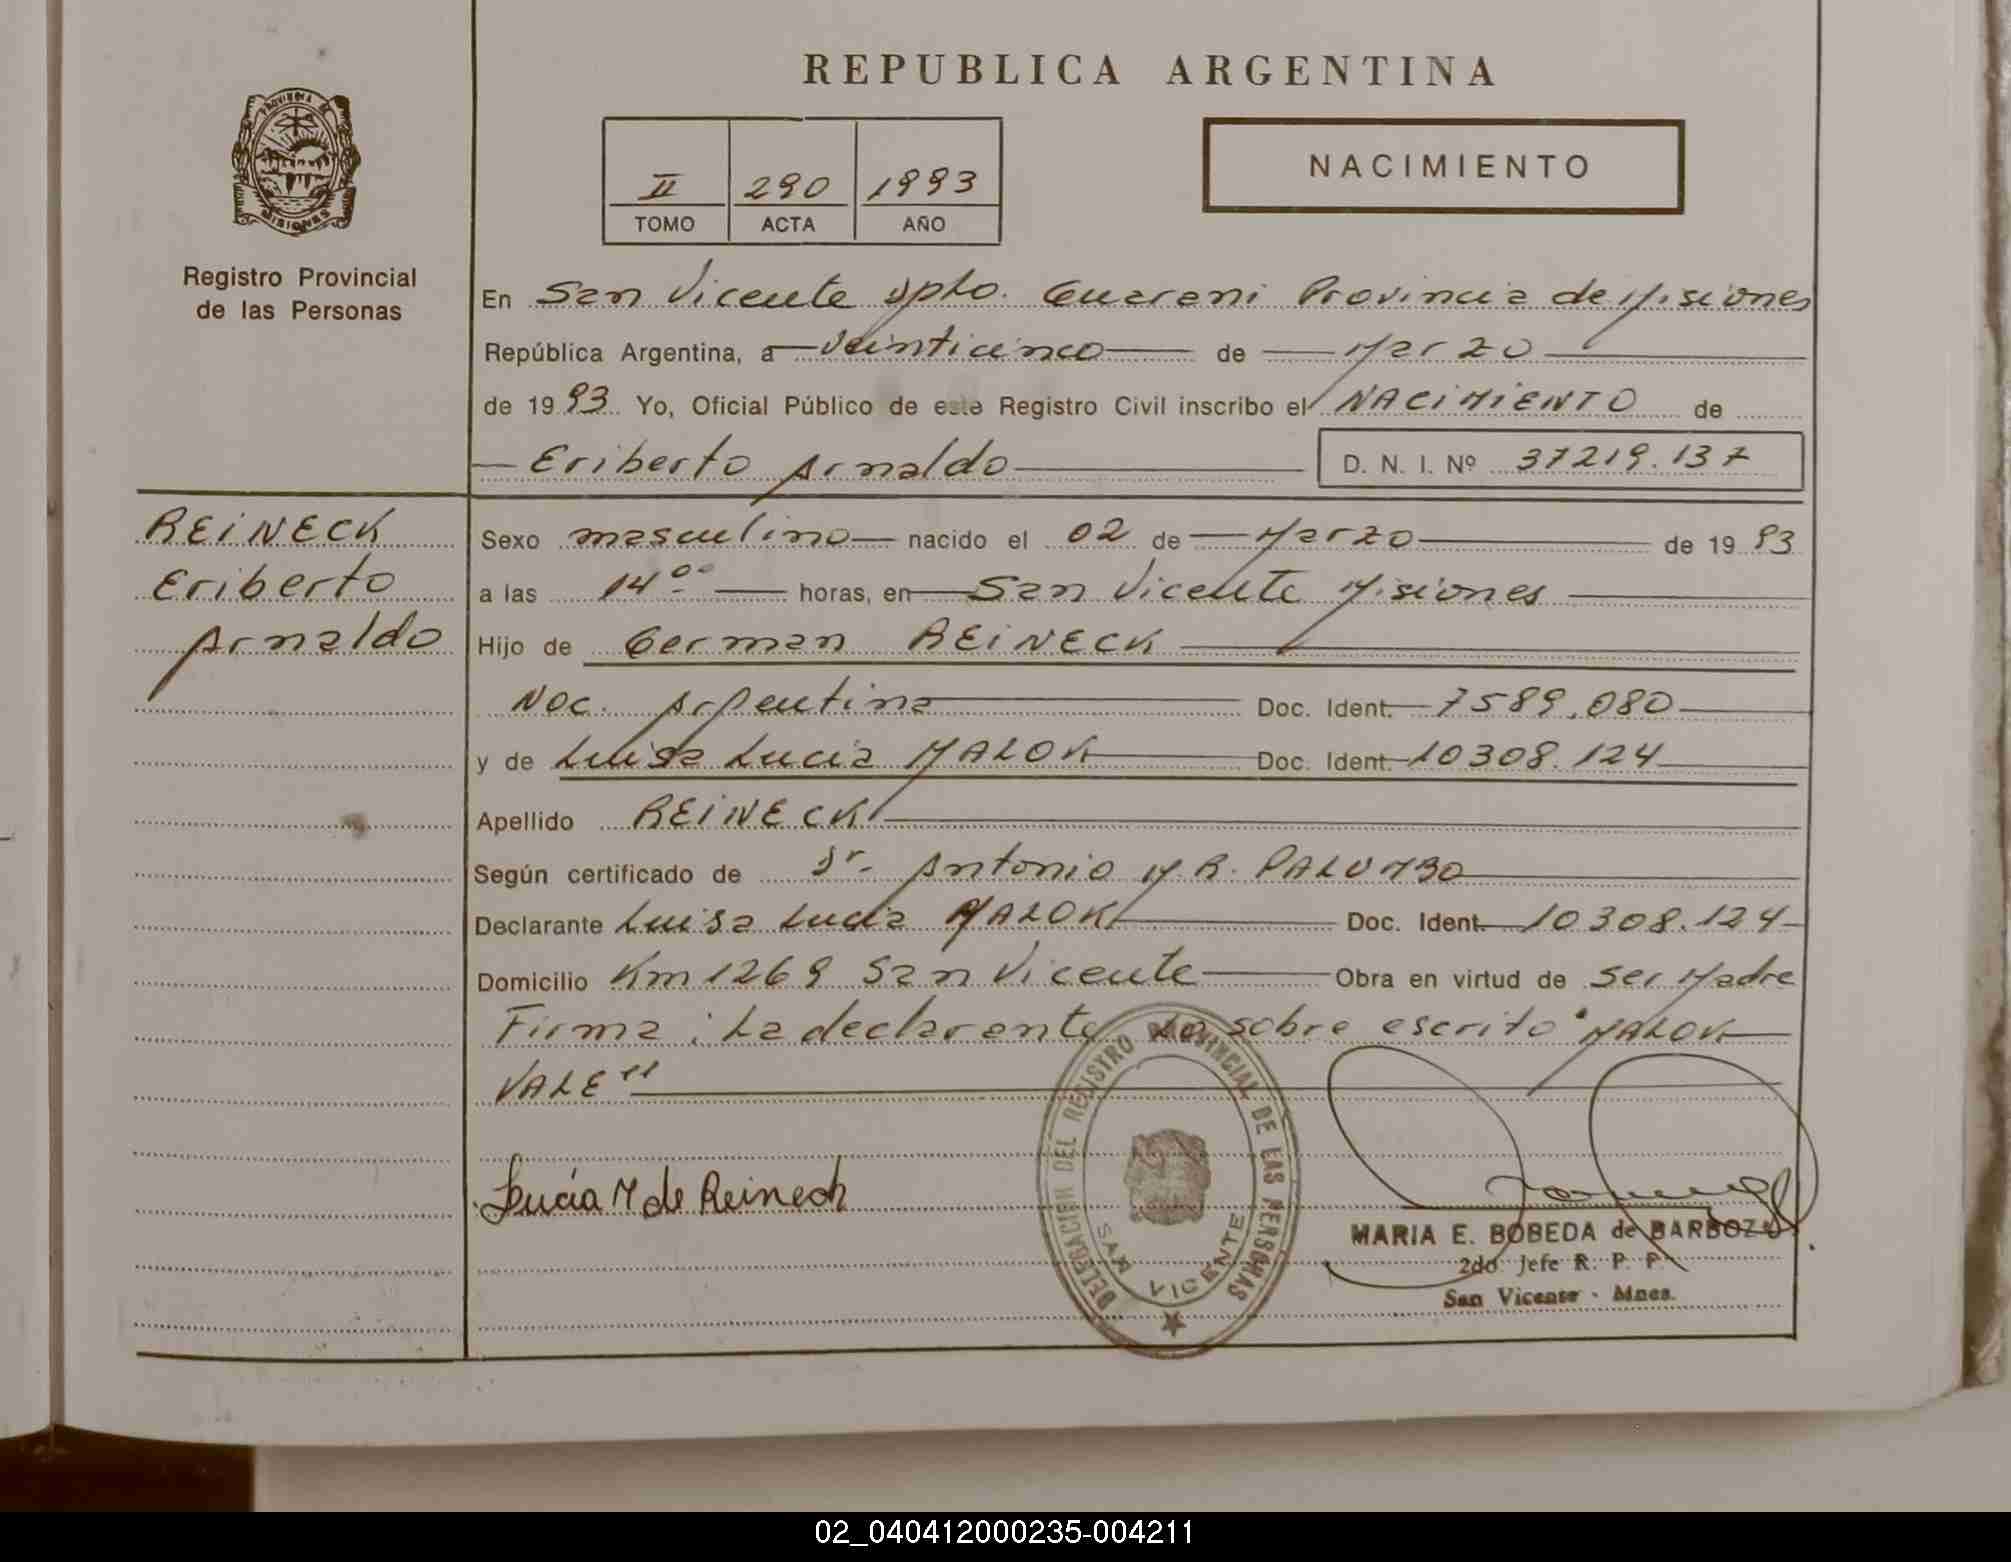 REPUBLICA ARGENTINA
PROVINCIA DE
MISIONES
Registro Provincial
de las Personas
II 290 1993
TOMO ACTA AÑO
NACIMIENTO
En San Vicente Dpto. Guarani Provincia de Misiones
República Argentina, a veinticinco de Marzo
de 1993. Yo, Oficial Público de este Registro Civil inscribo el NACIMIENTO de
Eriberto Arnaldo D. N. I. Nº 37219.137
REINECK
Eriberto
Arnaldo
Sexo masculino nacido el 02 de Marzo de 1993
a las 14°° horas, en San Vicente Misiones
Hijo de German REINECK
Nac. Argentina Doc. Ident. 7589.080
y de Luisa Lucia MALOK Doc. Ident. 10308.124
Apellido REINECK
Según certificado de Dr. Antonio M. R. PALUMBO
Declarante Luisa Lucia MALOK Doc. Ident. 10308.124
Domicilio Km 1269 San Vicente Obra en virtud de ser Madre
Firma: La declarante Lo sobre escrito "MALOK
VALE"
Lucia M de Reineck
DELEGACION DEL REGISTRO PROVINCIAL DE LAS PERSONAS
SAN VICENTE
MARIA E. BOBEDA de BARBOZA
2do Jefe R. P. P.
San Vicente - Mnes.
02_040412000235-004211